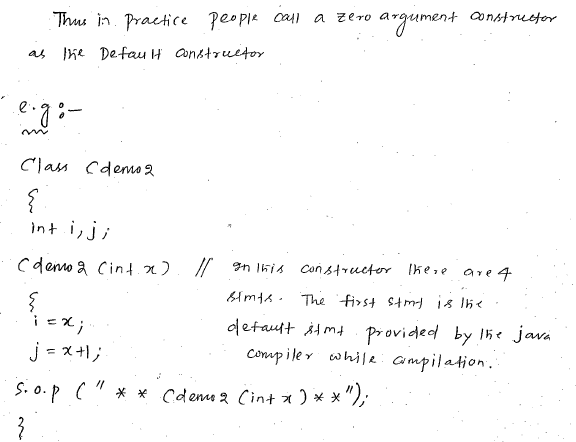 Thus in practice people call a zero argument constructor
as the Default constructor
e.g :-
Class Cdemo2
{
int i, j;
Cdemo2 (int x) // In this constructor there are 4
{ stmts. The first stmt is the
i = x; default stmt provided by the java
j = x+1; compiler while compilation.
S.o.p (" * * Cdemo2 (int x) * * ");
}